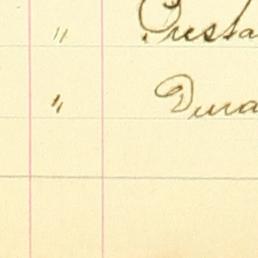 " Cresta
" Dura